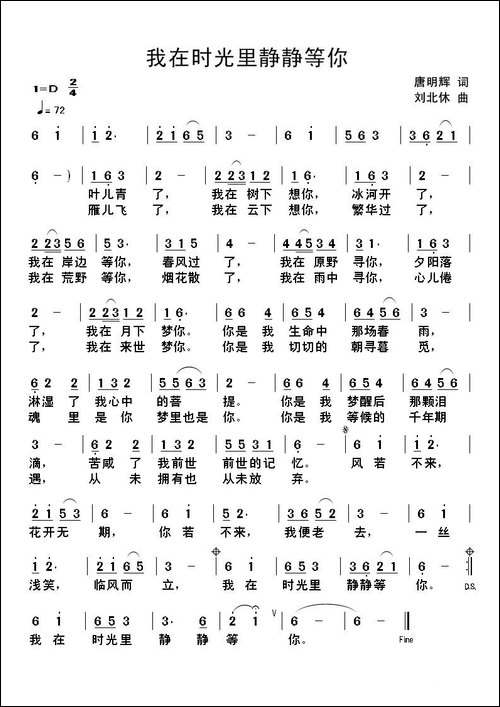 我在时光里静静等你
1=D 2/4
唐明辉 词
♩= 72
刘北休 曲
6 1 | 1 2· | 2 1 6 5 | 3 - | 6 - | 6 1 | 5 6 3 | 3 6 2 1 |
6 - ) | 1 6 3 | 2 - | 2 2 3 1 2 | 1 6· | 1 6 3 | 2 - |
叶儿青 了， 我在 树下 想你， 冰河开 了，
雁儿飞 了， 我在 云下 想你， 繁华过 了，
2 2 3 5 6 | 5 3· | 5 1 5 | 4 - | 4 4 5 3 4 | 3 1· | 1 6 3 |
我在 岸边 等你， 春风过 了， 我在 原野 寻你， 夕阳落
我在 荒野 等你， 烟花散 了， 我在 雨中 寻你， 心儿倦
2 - | 2 2 3 1 2 | 1 6· | 6 6 4 | 6 5 2 | 4 4 6 | 3 - |
了， 我在 月下 梦你。 你是 我 生命中 那场春 雨，
了， 我在 来世 梦你。 你是 我 切切的 朝寻暮 觅，
6 2 2 | 1 3 5 | 5 5 6 3 | 2 - | 6 6 4 | 6 5 2 | 4 4 6 |
淋湿 了 我心中 的菩 提。 你是 我 梦醒后 那颗泪
魂 里 是你 梦里也是 你。 你是 我 等候的 千年期
3 - | 6 2 2 | 1 3 2 | 5 5 1 5 | 6 - | 6 1 | 1 2· |
滴， 苦咸 了 我前世 前世的记 忆。 风若 不来，
遇， 从 未 拥有也 从未放 弃。
2 1 5 3 | 6 - | 6 1 | 5 6· | 3 2 2 | 3 - | 6 1 |
花开无 期， 你 若 不来， 我便老 去， 一丝
1 2· | 2 1 6 5 | 3 - | 6 1 | 5 6 3 | 3 6 2 1 | 6 - :|
浅笑， 临风而 立， 我 在 时光里 静静等 你。 D.S.
6 1 | 5 6 3 | 3 - | 6 - | 2 1 | 6 - | 6 - | 6 - |
我 在 时光里 静 静 等 你。 Fine